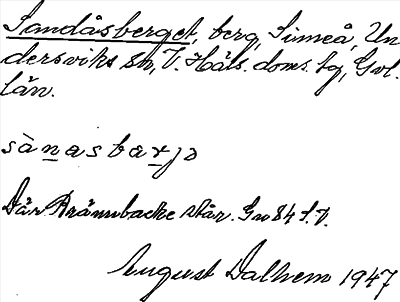 Sandåsberget, berg, Simeå, Un
dersviks sn, V. Häls. doms. tg, Gvl.
län.
sànasbærjə
Där Brännbacke står. Gv 84 S.V.
August Dalhem 1947